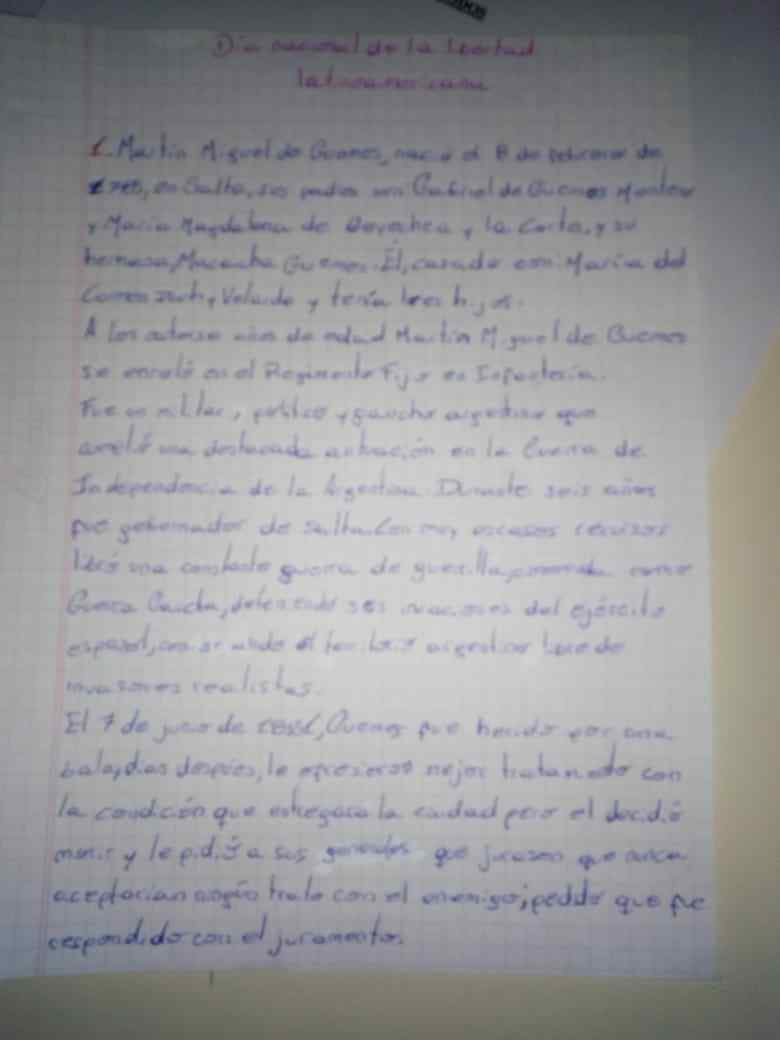 Dia nacional de la libertad
latinoamericana
1. Martín Miguel de Güemes, nació el 8 de febrero de
1785, en Salta, sus padres son Gabriel de Güemes Montero
y María Magdalena de Goyechea y la Corte, y su
hermana, Macacha Güemes. Él, casado con María del
Carmen Puch y Velarde y tenía tres hijos.
A los catorce años de edad Martín Miguel de Güemes
se enroló en el Regimiento Fijo en Infantería.
Fue un militar, político y gaucho argentino que
cumplió una destacada actuación en la Guerra de
Independencia de la Argentina. Durante seis años
fue gobernador de Salta. Con muy escasos recursos
libró una constante guerra de guerrilla, como
Guerra Gaucha, deteniendo seis invasiones del ejército
español, el territorio argentino libre de
invasores realistas.
El 7 de junio de Güemes fue herido por una
bala, días después, le ofrecieron mejor tratamiento con
la condición que entregara la ciudad pero el decidió
morir y le pidió a sus generales que jurasen que nunca
aceptarían ningún trato con el enemigo; pedido que fue
respondido con el juramento.